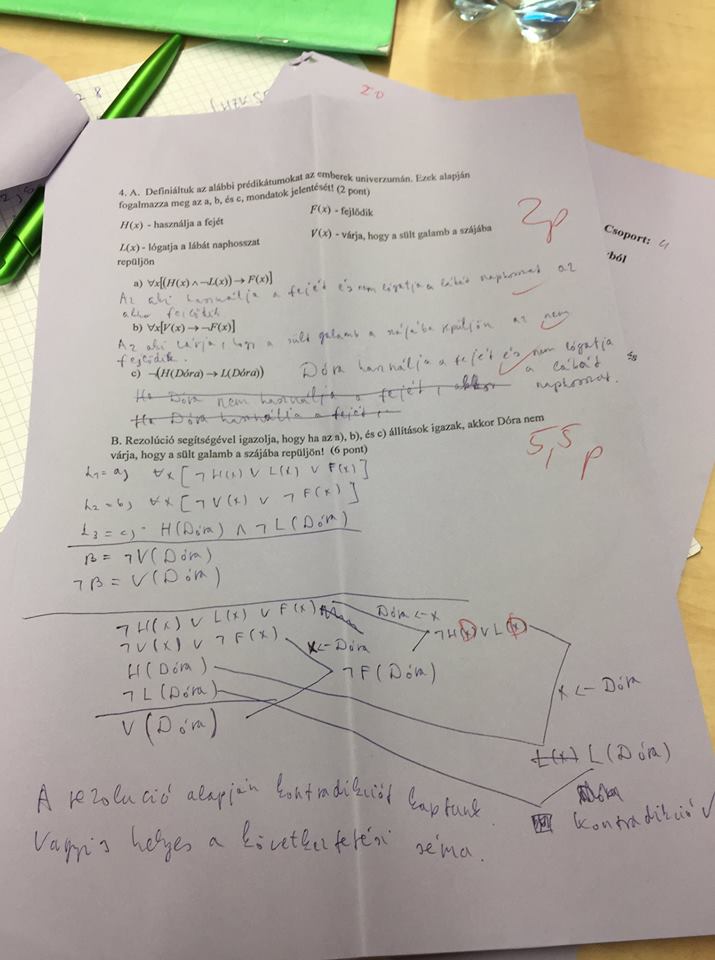 20
4. A. Definiáltuk az alábbi prédikátumokat az emberek univerzumán. Ezek alapján
fogalmazza meg az a, b, és c, mondatok jelentését! (2 pont)
2p
H(x) - használja a fejét
F(x) - fejlődik
Csoport: 4
L(x) - lógatja a lábát naphosszat
V(x) - várja, hogy a sült galamb a szájába
repüljön
ból
a) ∀x[(H(x) ∧ ¬L(x)) → F(x)]
Az aki használja a fejét és nem lógatja a lábát naphosszat az
akkor fejlődik
b) ∀x[V(x) → ¬F(x)]
Az aki várja, hogy a sült galamb a szájába repüljön az nem
fejlődik.
c) ¬(H(Dóra) → L(Dóra))
Dóra használja a fejét és nem lógatja
a lábát
naphosszat.
Ha Dóra nem használja a fejét, akkor
Ha Dóra használja a fejét
B. Rezolúció segítségével igazolja, hogy ha az a), b), és c) állítások igazak, akkor Dóra nem
várja, hogy a sült galamb a szájába repüljön! (6 pont)
5,5 p
L1 = a, ∀x [¬H(x) ∨ L(x) ∨ F(x)]
L2 = b, ∀x [¬V(x) ∨ ¬F(x)]
L3 = c, H(Dóra) ∧ ¬L(Dóra)
B = ¬V(Dóra)
¬B = V(Dóra)
¬H(x) ∨ L(x) ∨ F(x) Dóra <- x ¬H(x) ∨ L(x)
¬V(x) ∨ ¬F(x) x <- Dóra
H(Dóra) ¬F(Dóra)
¬L(Dóra) x <- Dóra
V(Dóra)
L(x) L(Dóra)
kontradikció
A rezolució alapján kontradikciót kaptunk.
Vagyis helyes a következtetési séma.